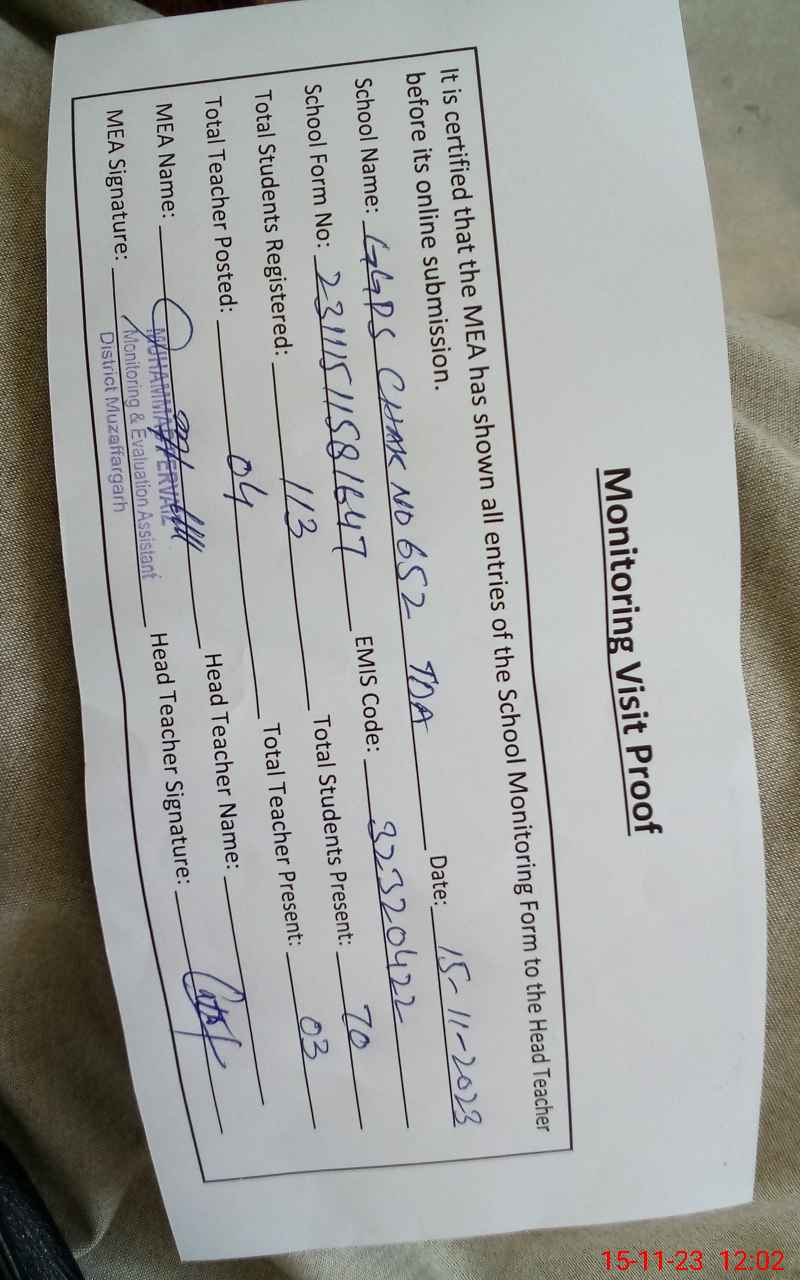 Monitoring Visit Proof
It is certified that the MEA has shown all entries of the School Monitoring Form to the Head Teacher
before its online submission.
School Name: GGPS CHAK NO 652 TDA Date: 15-11-2023
School Form No: 23111511581647 EMIS Code: 32320422
Total Students Registered: 113 Total Students Present: 70
Total Teacher Posted: 04 Total Teacher Present: 03
MEA Name: MUHAMMAD PERVAIZ Head Teacher Name:
MEA Signature: Monitoring & Evaluation Assistant Head Teacher Signature:
District Muzaffargarh
15-11-23 12:02